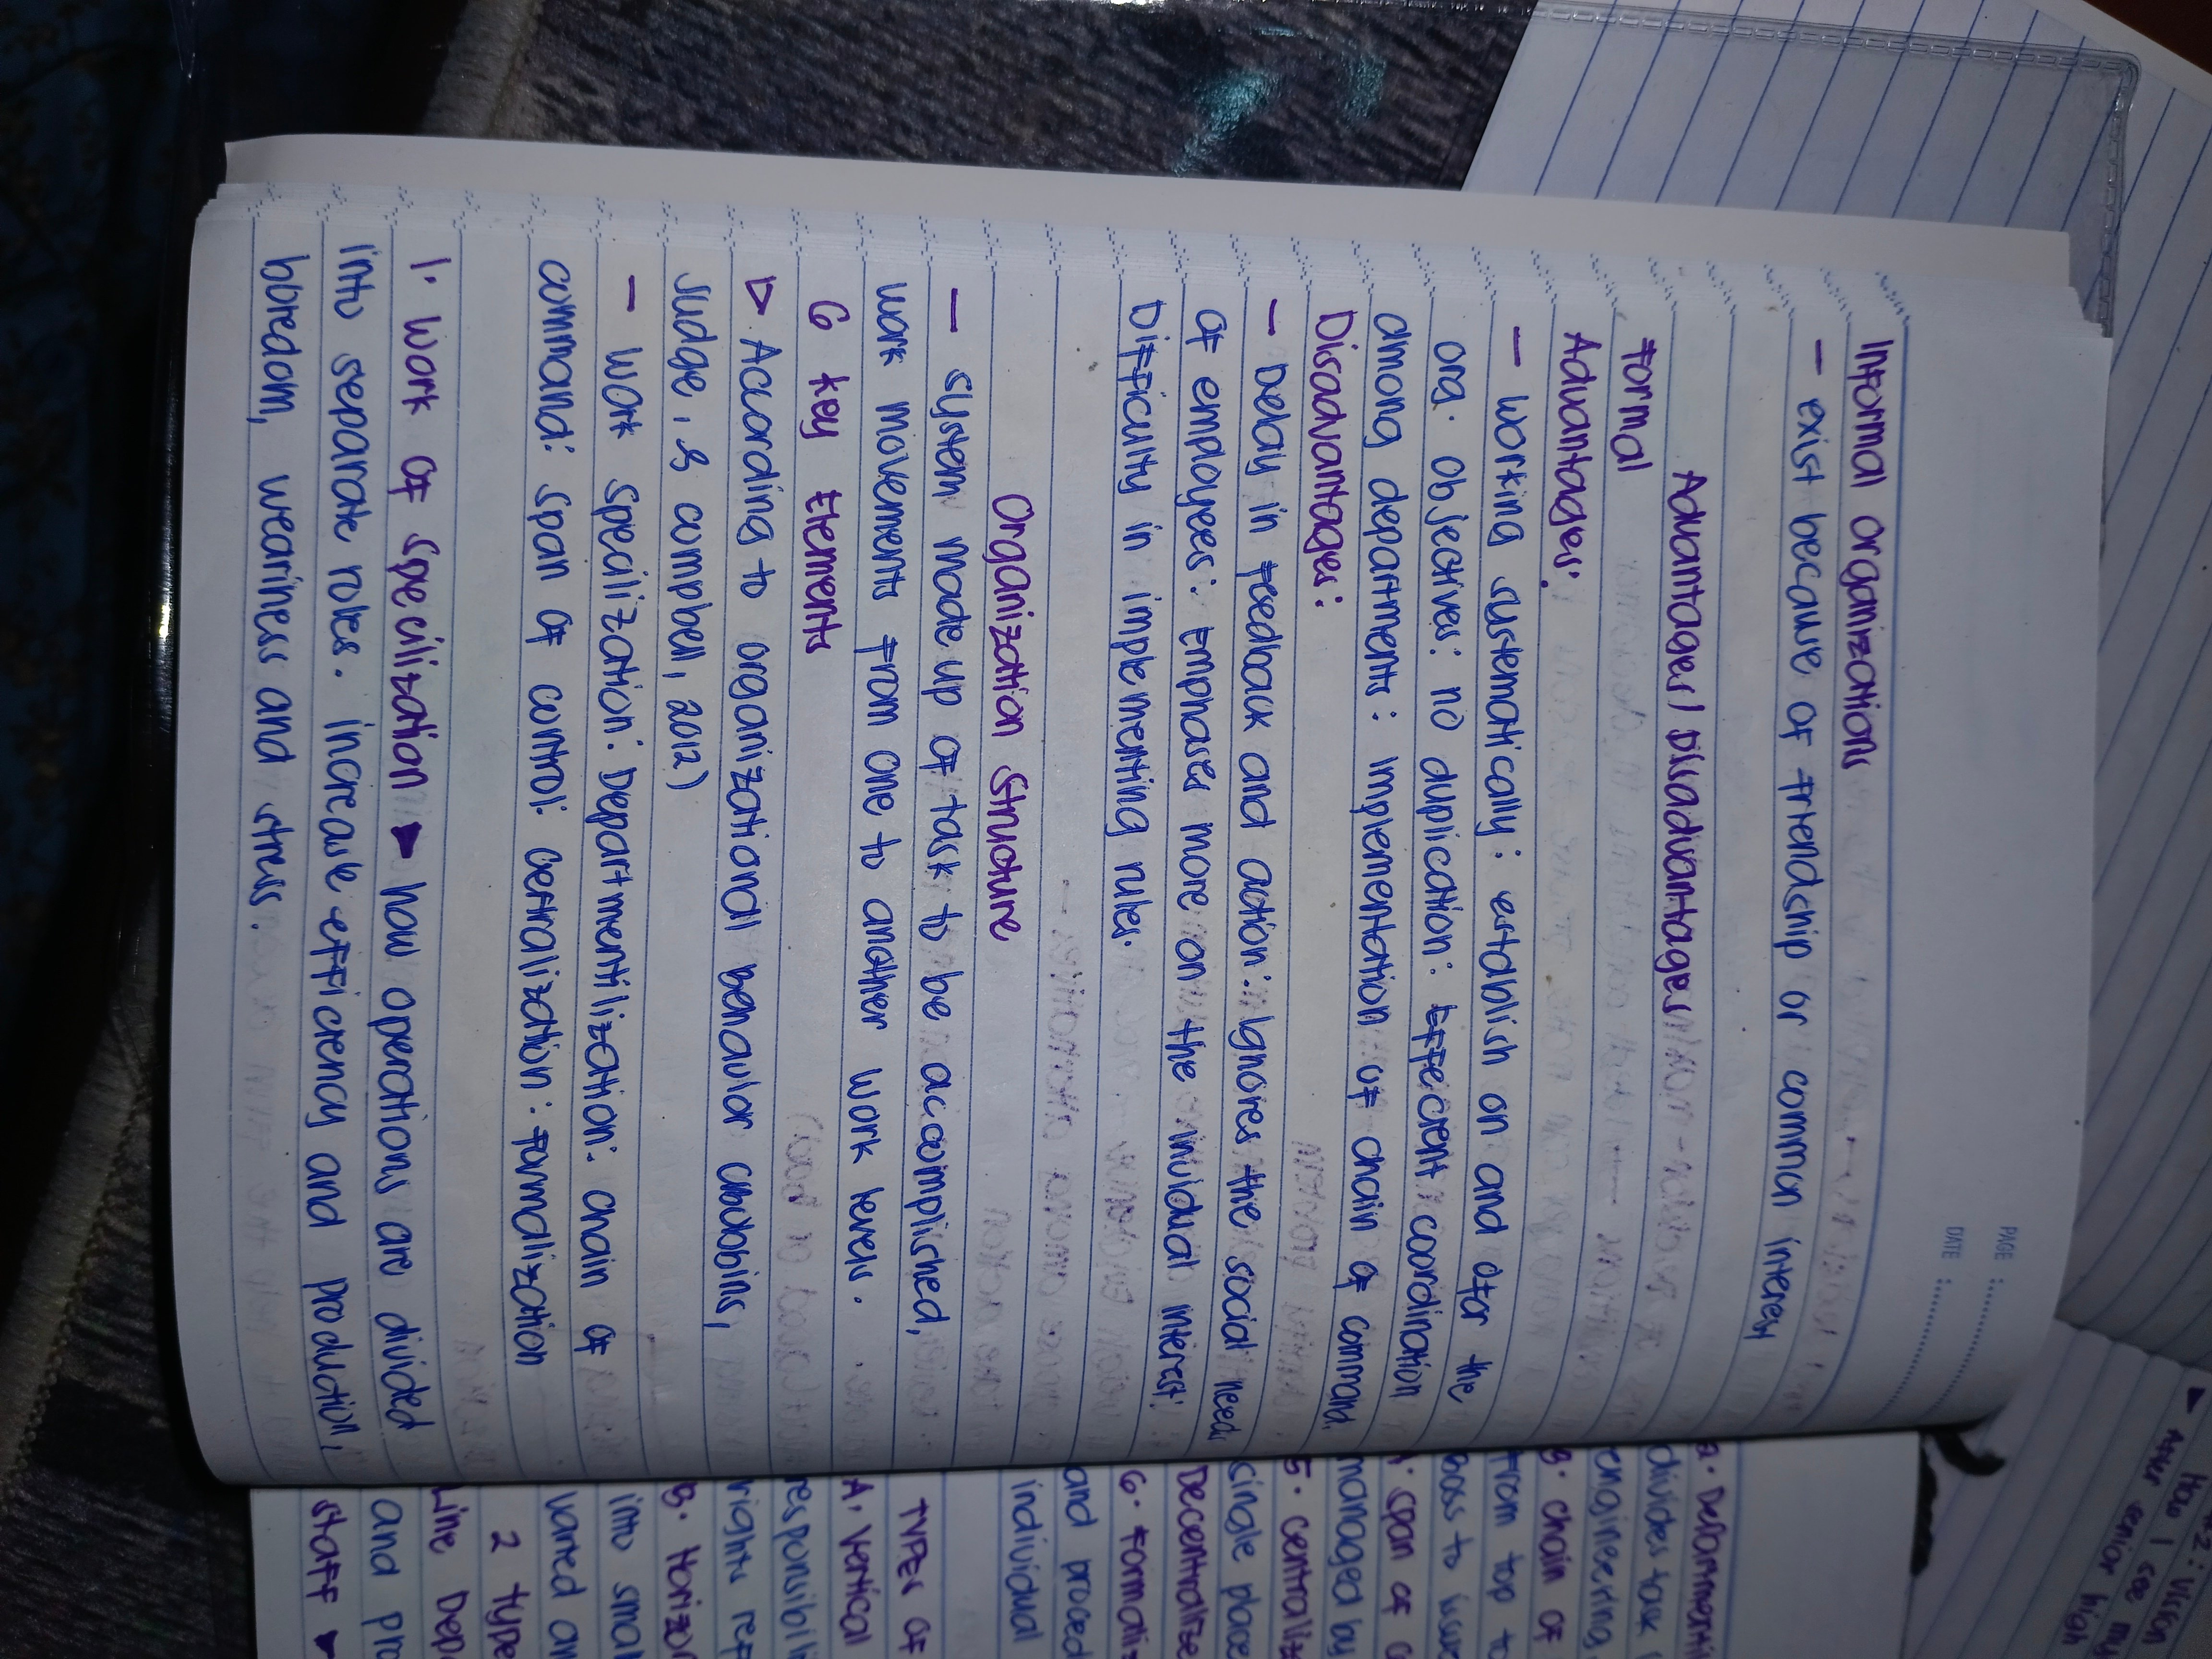 PAGE :
DATE :
Informal Organizations
— exist because of friendship or common interest
Advantages / Disadvantages
Formal
Advantages:
— working sustematically: establish on and ofor the
org. objectives: no duplication: Effecient coordination
among departments: implementation of chain of command
Disadvantages:
— Delay in feedback and action: Ignores the social needs
of employees: Emphases more on the invidual interest:
Difficulty in implementing rules.
Organization Structure
— system made up of task to be accomplished,
work movements from one to another work levels.
6 key Elements
▷ According to organizational behavior (Robbins,
Judge, & campbell, 2012)
— Work specilization: Departmentilization: chain of
command: span of control: centralization: formalization
1. Work of specilization ▶ how operations are divided
into separate roles. increase efficrency and production,
boredom, weariness and stress.
2. Departmenti
divides task
engineering
3. chain of
from top to
boss to issue
. span of c
managed by
5. centraliz
single place
Decentralize
6. Formaliz
and proced
individual
TYPES OF
A. Vertical
responsibili
rights ref
B. Horizon
into smal
varied an
2 Type
Line Dep
and pro
staff ▶
2: Vision
How I see my
After senior high